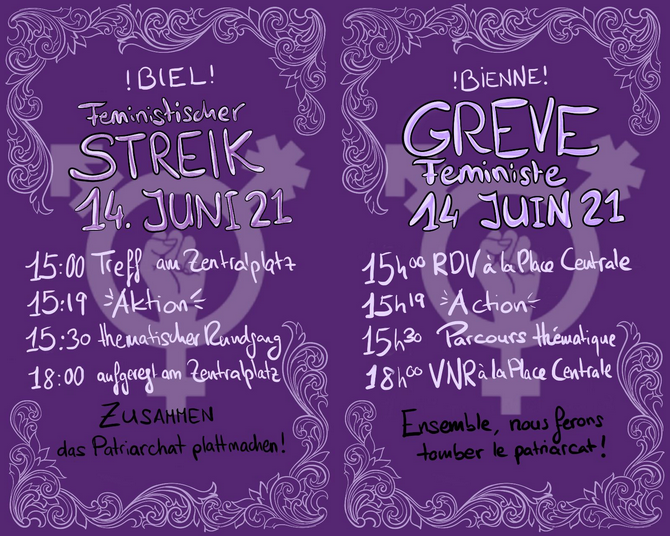 !BIEL!
Feministischer
STREIK
14. JUNI 21
15:00 Treff am Zentralplatz
15:19 Aktion
15:30 thematischer Rundgang
18:00 aufgeregt am Zentralplatz
ZUSAMMEN
das Patriarchat plattmachen!
!BiENNE!
GREVE
Feministe
14 JUIN 21
15h00 RDV à la Place Centrale
15h19 Action
15h30 Parcours thématique
18h00 VNR à la Place Centrale
Ensemble, nous ferons
tomber le patriarcat!